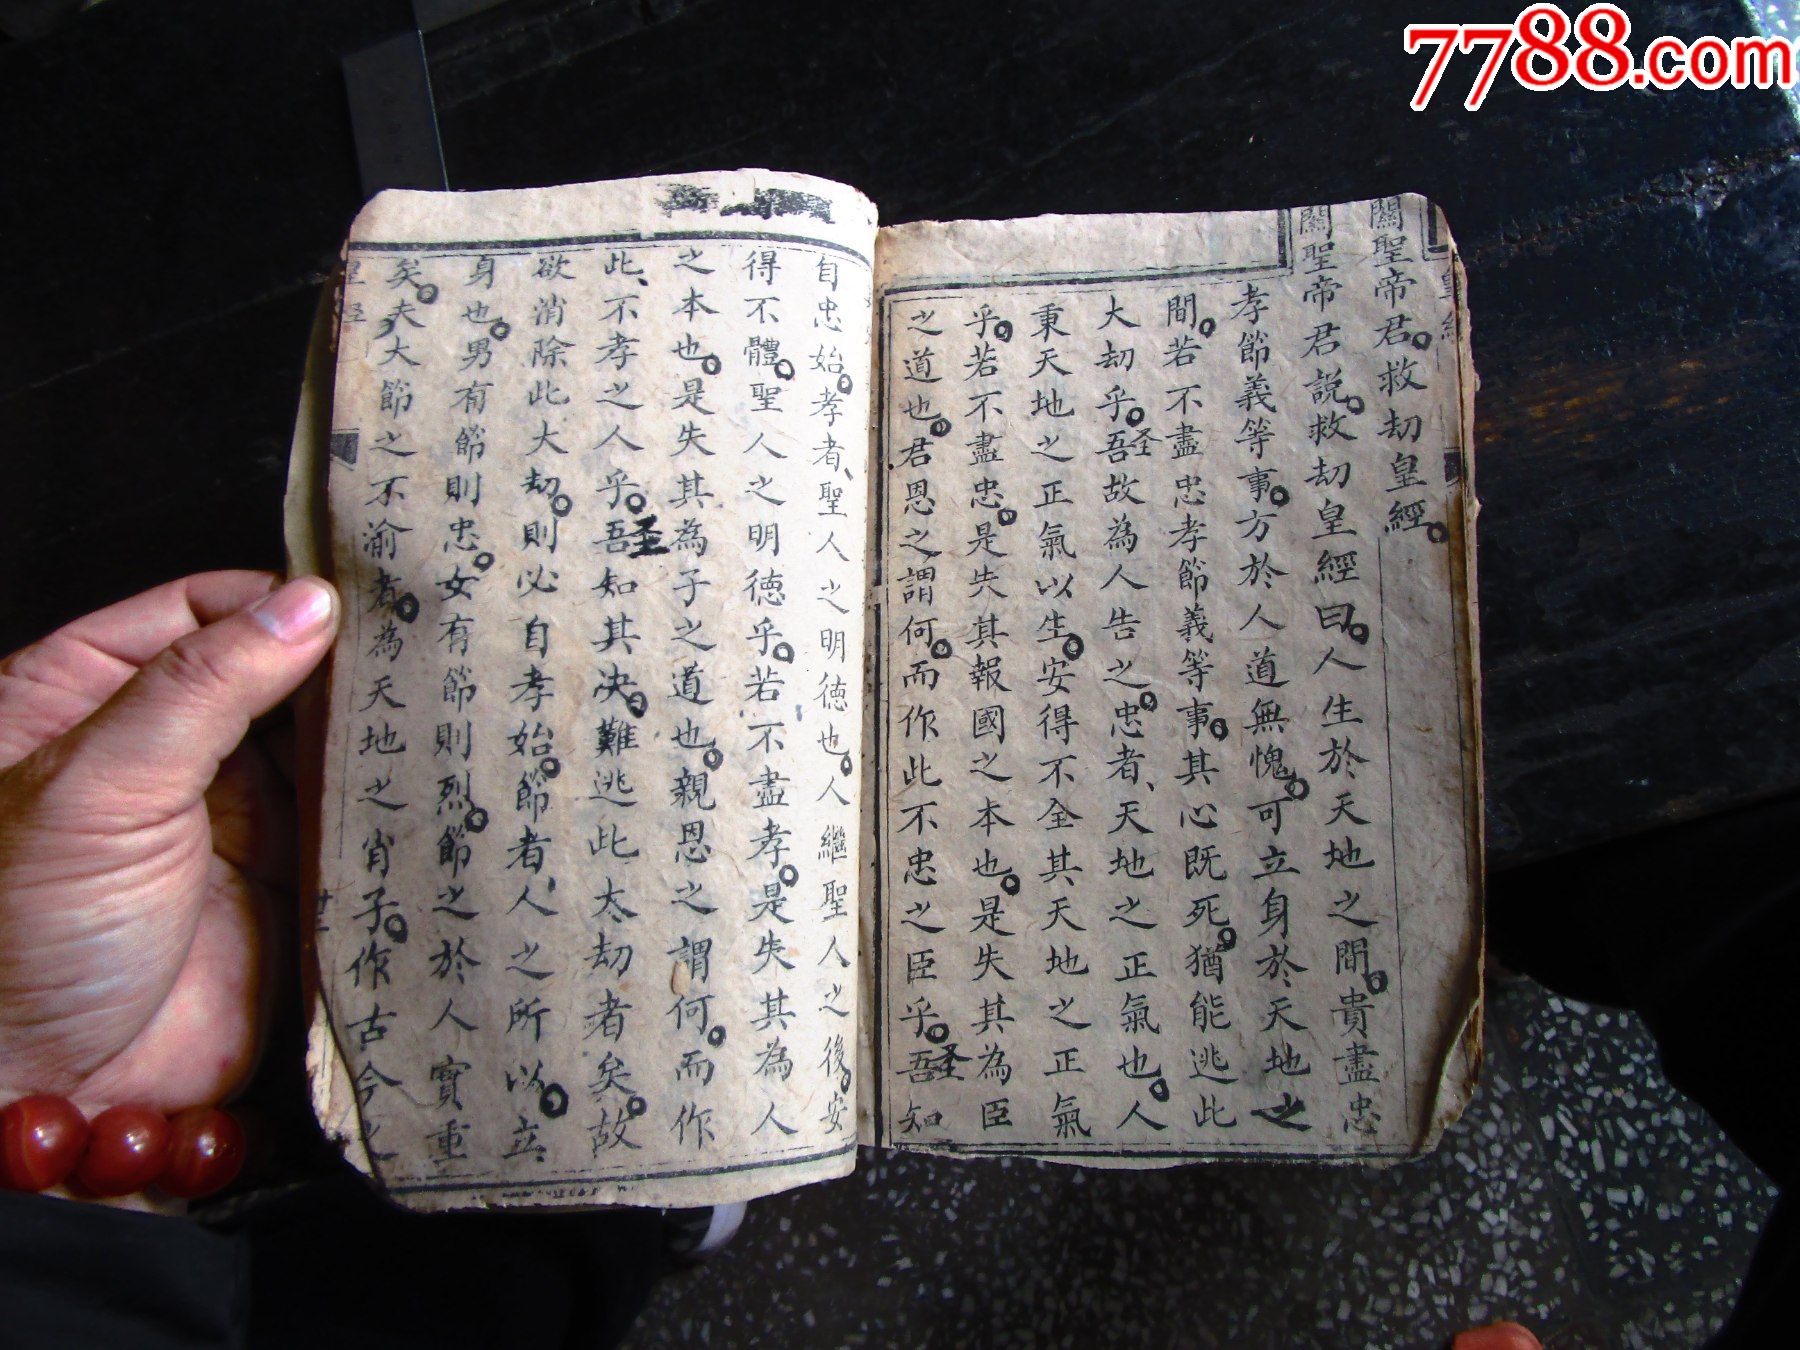 7788.com
關聖帝君。救劫皇經。
關聖帝君説。救劫皇經曰。人生於天地之間。貴盡忠
孝節義等事。方於人道無愧。可立身於天地之
間。若不盡忠孝節義等事。其心既死。猶能逃此
大劫乎。吾圣故為人告之。忠者、天地之正氣也。人
秉天地之正氣以生。安得不全其天地之正氣
乎。若不盡忠。是失其報國之本也。是失其為臣
之道也。君恩之謂何。而作此不忠之臣乎。吾圣知
自忠始。孝者、聖人之明德也。人繼聖人之後。安
得不體。聖人之明德乎。若不盡孝。是失其為人
之本也。是失其為子之道也。親恩之謂何。而作
此、不孝之人乎。吾圣知其决。難逃此大劫者矣。故
欲消除此大劫。則必自孝始。節者、人之所以。立
身也。男有節則忠。女有節則烈。節之於人實重
矣。夫大節之不渝者。為天地之肖子。作古今之
皇經